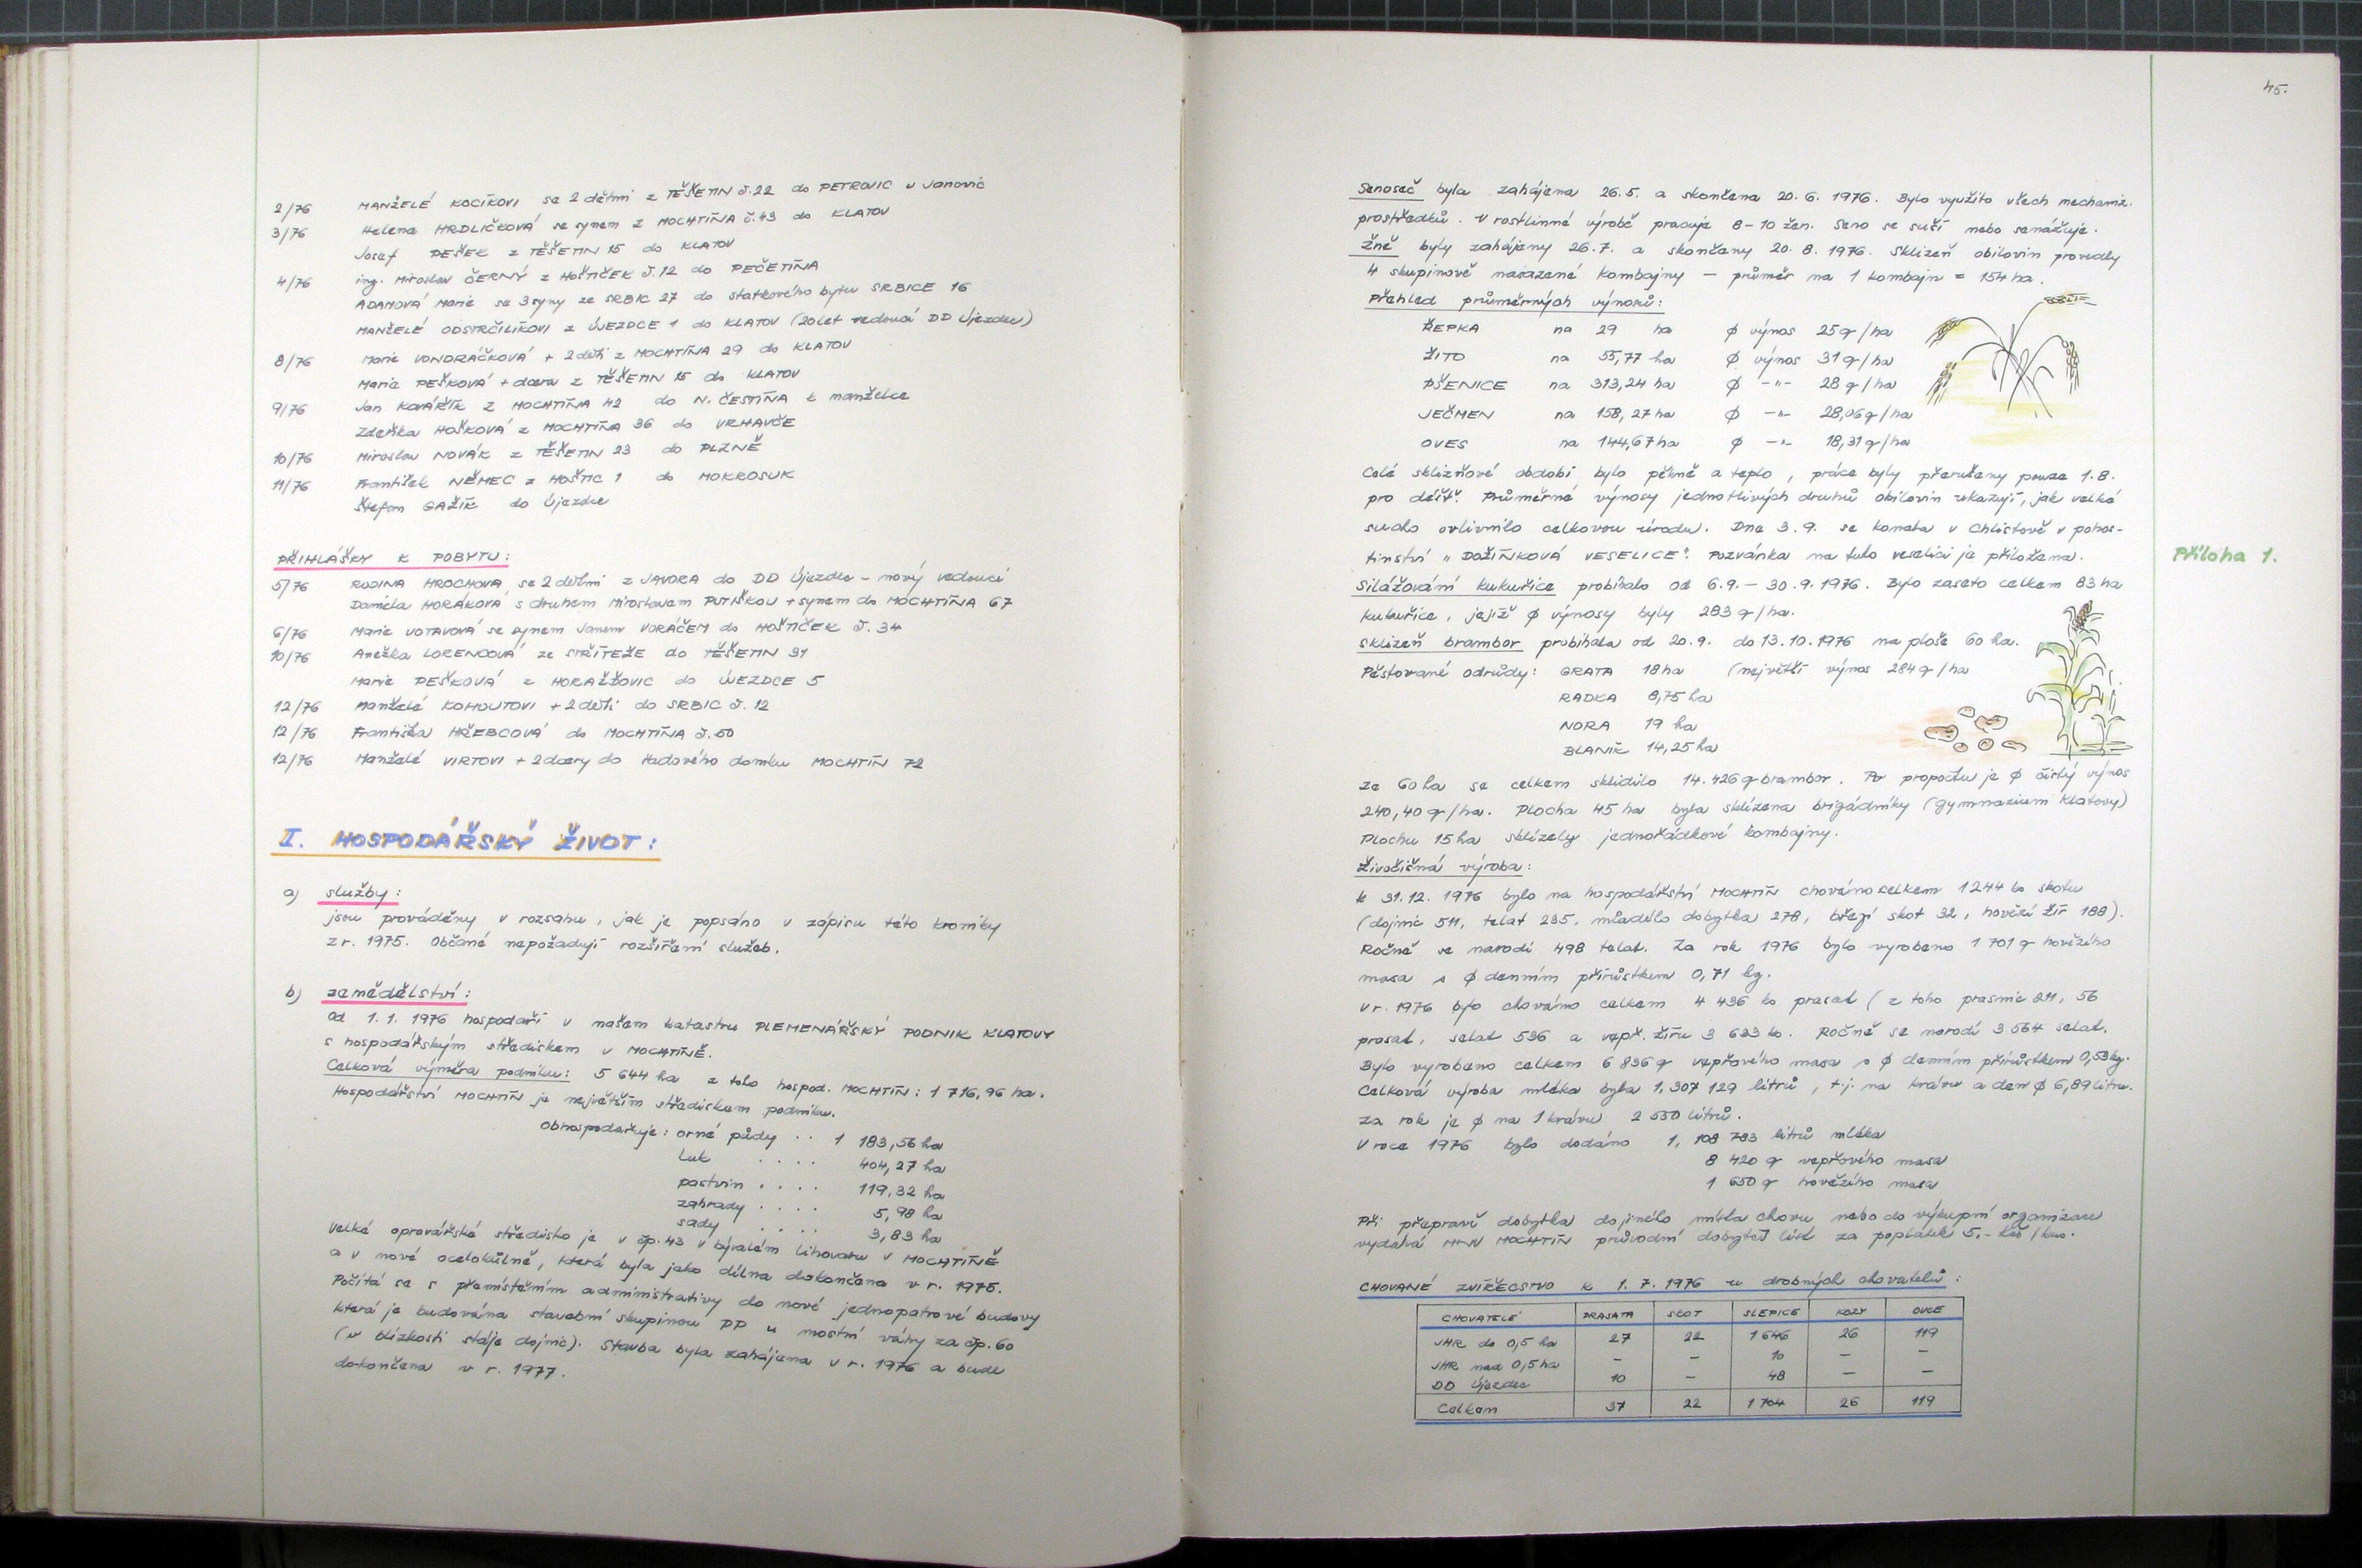 2/76 MANŽELÉ KOCÍKOVI se 2 dětmi z TĚŠETIN č.22 do PETROVIC u Janovic
3/76 Helena HRDLIČKOVÁ se synem z MOCHTÍNA č.43 do KLATOV
Josef PEŠEK z TĚŠETIN 15 do KLATOV
4/76 ing. Miroslav ČERNÝ z HOŠTIČEK č.12 do PEČETÍNA
ADAMOVÁ Marie se 3 syny ze SRBIC 27 do statkového bytu SRBICE 16
MANŽELÉ ODSTRČILÍKOVI z ÚJEZDCE 1 do KLATOV (20 let vedoucí DD Újezdec)
8/76 Marie VONDRÁČKOVÁ + 2 děti z MOCHTÍNA 29 do KLATOV
Marie PEŠKOVÁ + dcera z TĚŠETIN 15 do KLATOV
9/76 Jan KOVÁŘÍK z MOCHTÍNA 42 do N. ČESTÍNA k manželce
Zdeňka HOŠKOVÁ z MOCHTÍNA 36 do VRHAVČE
10/76 Miroslav NOVÁK z TĚŠETIN 23 do PLZNĚ
11/76 František NĚMEC z HOŠTIC 1 do MOKROSUK
Štefan GAŽÍK do Újezdce
PŘIHLÁŠKY K POBYTU:
5/76 RODINA HROCHOVA se 2 dětmi z JAVORA do DD Újezdec - nový vedoucí
Daniela HORÁKOVÁ s druhem Miroslavem PUTIŠKOU + synem do MOCHTÍNA 67
6/76 Marie VOTAVOVÁ se synem Janem VORÁČEM do HOŠTIČEK č. 34
10/76 Anežka LORENCOVÁ ze STŘÍTEŽE do TĚŠETIN 31
Marie PEŠKOVÁ z HORAŽĎOVIC do ÚJEZDCE 5
12/76 Manželé KOHOUTOVI + 2 děti do SRBIC č. 12
12/76 Františka HŘEBCOVÁ do MOCHTÍNA č.50
12/76 Manželé VIRTOVI + 2 dcery do řadového domku MOCHTÍN 72
II. HOSPODÁŘSKÝ ŽIVOT:
a) služby:
jsou prováděny v rozsahu, jak je popsáno v zápisu této kroniky
z r. 1975. Občané nepožadují rozšíření služeb.
b) zemědělství:
Od 1.1. 1976 hospodaří v našem katastru PLEMENÁŘSKÝ PODNIK KLATOVY
s hospodářským střediskem v MOCHTÍNĚ.
Celková výměra podniku: 5 644 ha z toho hospod. MOCHTÍN: 1 716,96 ha.
Hospodářství MOCHTÍN je největším střediskem podniku.
Obhospodařuje: orné půdy .. 1 183,56 ha
luk .... 404,27 ha
pastvin .... 119,32 ha
zahrady .... 5,98 ha
sady .... 3,83 ha
Velké opravářské středisko je v čp. 43 v bývalém lihovaru v MOCHTÍNĚ
a v nové ocelokůlně, která byla jako dílna dokončena v r. 1975.
Počítá se s přemístěním administrativy do nové jednopatrové budovy
která je budována stavební skupinou PP u mostní váhy za čp. 60
(v blízkosti stáje dojnic). Stavba byla zahájena v r. 1976 a bude
dokončena v r. 1977.
45.
Senoseč byla zahájena 26.5. a skončena 20.6. 1976. Bylo využito všech mechaniz.
prostředků. V rostlinné výrobě pracuje 8-10 žen. Seno se suší nebo senážuje.
Žně byly zahájeny 26.7. a skončeny 20.8. 1976. Sklizeň obilovin provedly
4 skupinově nasazené kombajny - průměr na 1 kombajn = 154 ha.
Přehled průměrných výnosů:
ŘEPKA na 29 ha ϕ výnos 25 q/ha
ŽITO na 55,77 ha ϕ výnos 31 q/ha
PŠENICE na 313,24 ha ϕ -"- 28 q/ha
JEČMEN na 158,27 ha ϕ -"- 28,06 q/ha
OVES na 144,67 ha ϕ -"- 18,31 q/ha
Celé sklizňové období bylo pěkně a teplo, práce byly přerušeny pouze 1.8.
pro déšť. Průměrné výnosy jednotlivých druhů obilovin ukazují, jak velké
sucho ovlivnilo celkovou úrodu. Dne 3.9. se konala v Chlistově v pohos-
tinství „DOŽÍNKOVÁ VESELICE". Pozvánka na tuto veselici je přiložena.
Příloha 1.
Silážování kukuřice probíhalo od 6.9. - 30.9. 1976. Bylo zaseto celkem 83 ha
kukuřice, jejíž ϕ výnosy byly 283 q/ha.
Sklizeň brambor probíhala od 20.9. do 13.10.1976 na ploše 60 ha.
Pěstované odrůdy: GRATA 18 ha (největší výnos 284 q/ha
RADKA 8,75 ha
NORA 19 ha
BLANÍK 14,25 ha
Ze 60 ha se celkem sklidilo 14.426 q brambor. Po propočtu je ϕ čistý výnos
240,40 q/ha. Plocha 45 ha byla sklízena brigádníky (gymnazium Klatovy)
Plochu 15 ha sklízely jednořádkové kombajny.
Živočišná výroba:
k 31.12. 1976 bylo na hospodářství MOCHTÍN chováno celkem 1 244 ks skotu
(dojnic 511, telat 235, mladého dobytka 278, březí skot 32, hovězí žír 188).
Ročně se narodí 498 telat. Za rok 1976 bylo vyrobeno 1 701 q hovězího
masa s ϕ denním přírůstkem 0,71 kg.
V r. 1976 bylo chováno celkem 4 436 ks prasat (z toho prasnic 211, 56
prasat, selat 536 a vepř. žíru 3 633 ks. Ročně se narodí 3 564 selat.
Bylo vyrobeno celkem 6 836 q vepřového masa s ϕ denním přírůstkem 0,53 kg.
Celková výroba mléka byla 1,307 129 litrů, t.j. na krávu a den ϕ 6,89 litru.
za rok je ϕ na 1 krávu 2 530 litrů.
V roce 1976 bylo dodáno 1, 108 783 litrů mléka
8 420 q vepřového masa
1 650 q hovězího masa
Při přepravě dobytka do jiného místa chovu nebo do výkupní organizace
vydává MNV MOCHTÍN průvodní dobytčí list za poplatek 5,- Kčs/kus.
CHOVANÉ ZVÍŘECTVO k 1. 7. 1976 u drobných chovatelů:
CHOVATELÉ PRASATA SKOT SLEPICE KOZY OVCE
JHR do 0,5 ha 27 22 1 646 26 119
JHR nad 0,5 ha - - 10 - -
DD Újezdec 10 - 48 - -
Celkem 37 22 1 704 26 119